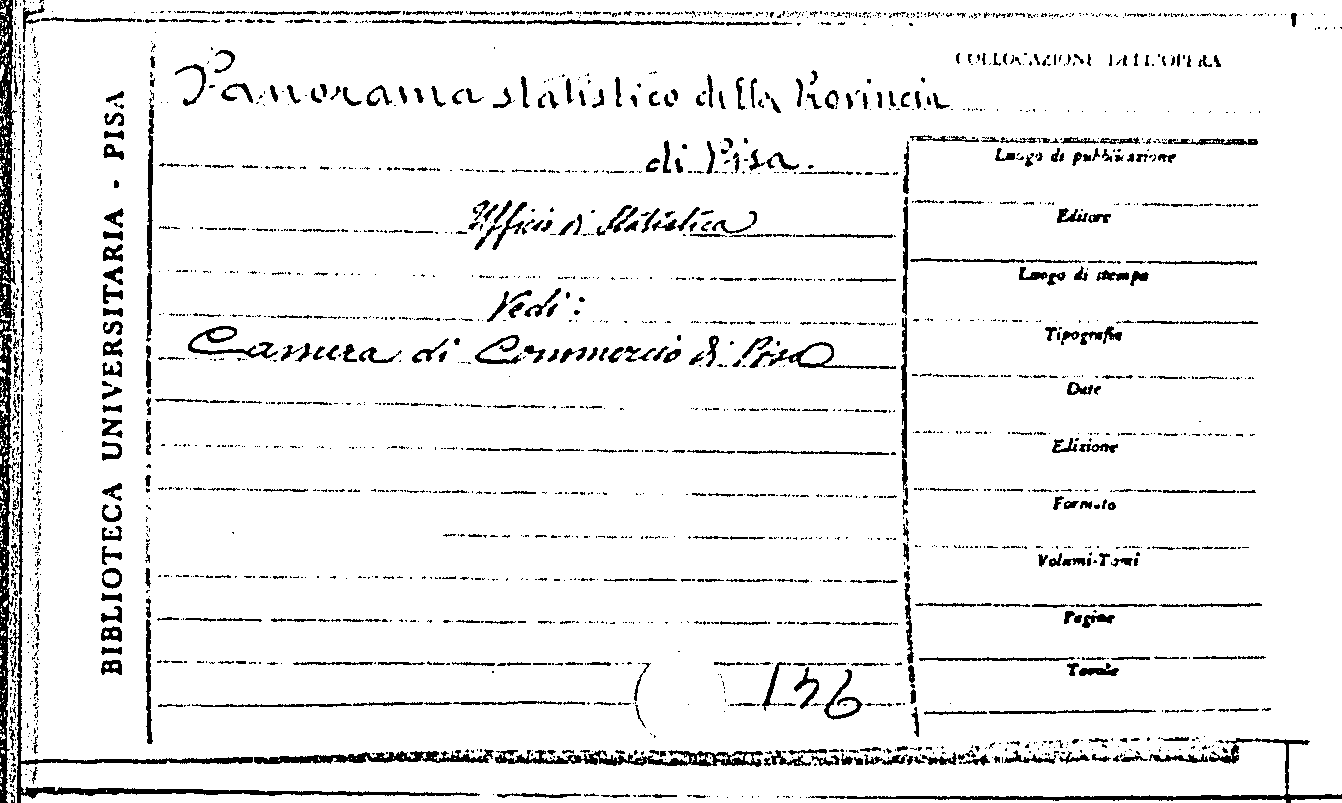 BIBLIOTECA UNIVERSITARIA - PISA
COLLOCAZIONE DELL'OPERA
Panorama statistico della Provincia
di Pisa.
Ufficio di Statistica
Vedi:
Camera di Commercio di Pisa
Luogo di pubblicazione
Editore
Luogo di stampa
Tipografia
Date
Edizione
Formato
Volumi-Tomi
Pagine
Tavole
136